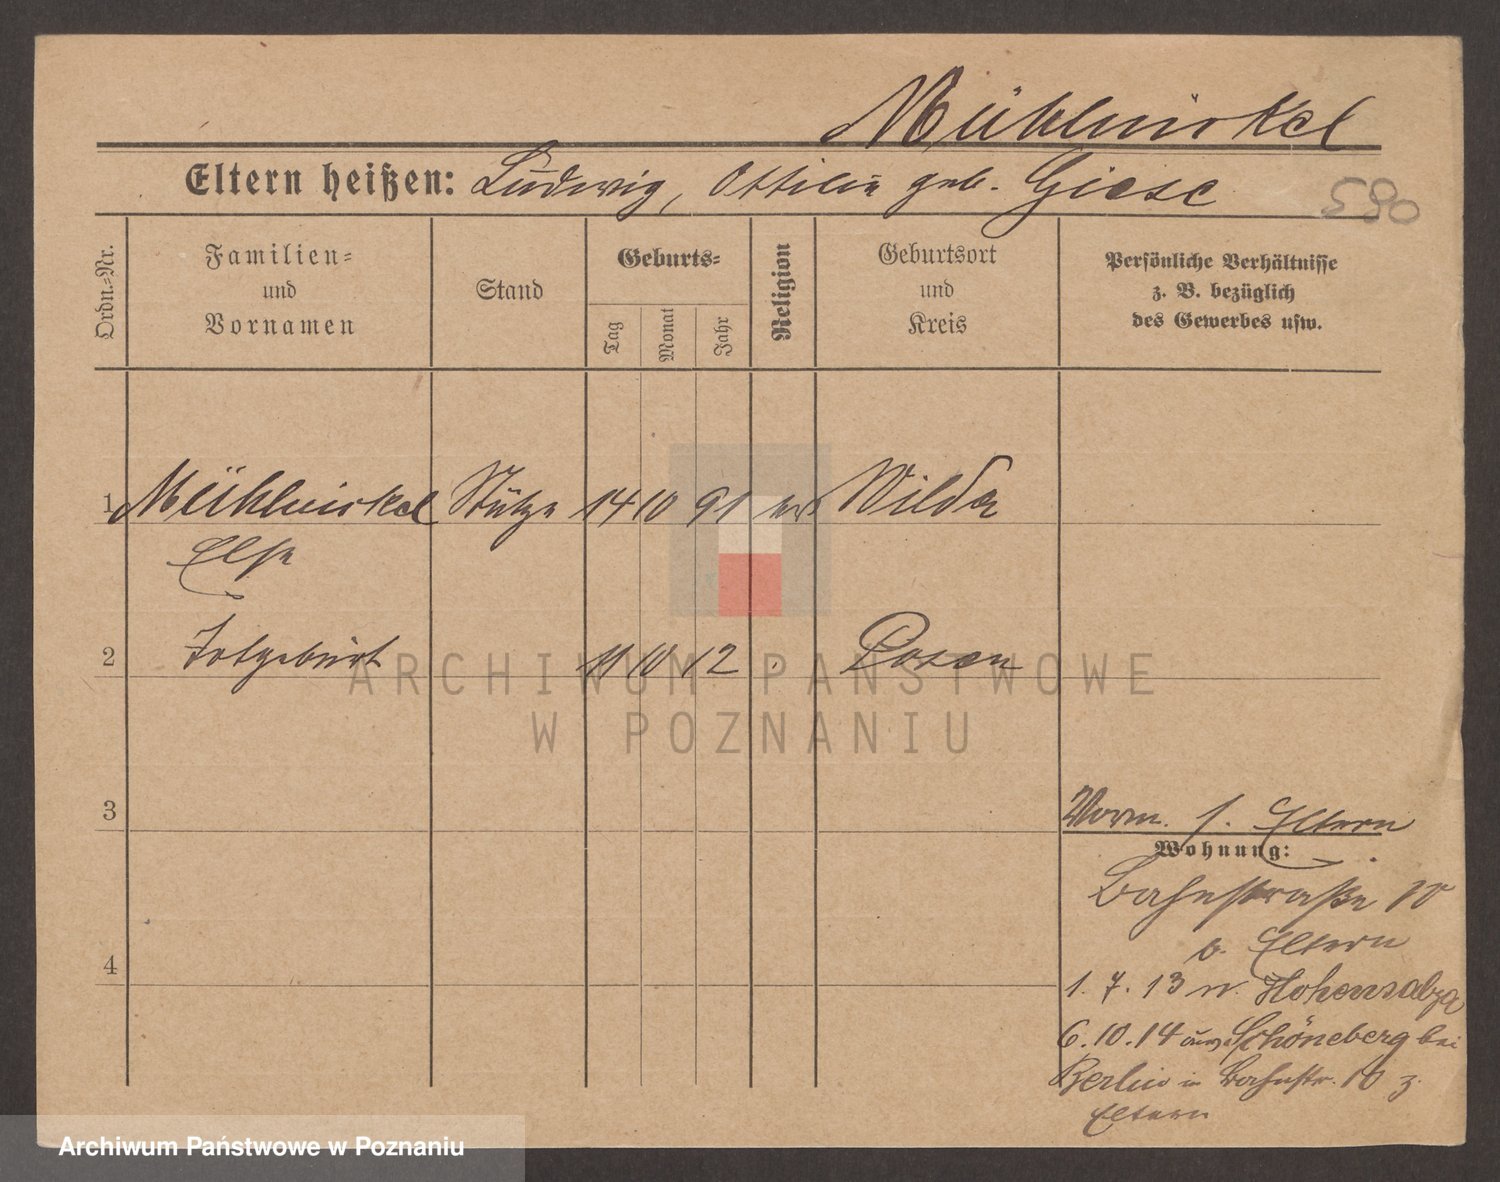 Mühlnickel
Eltern heißen: Ludwig, Ottilie geb. Giese
590
Ordn.-Nr.
Familien-
und
Vornamen
Stand
Geburts-
Tag
Monat
Jahr
Religion
Geburtsort
und
Kreis
Persönliche Verhältnisse
z. B. bezüglich
des Gewerbes usw.
1 Mühlnickel Stütze 14 10 91 Wilda
Else
2 Totgeburt 11 10 12 Posen
3
4
Vorm. s. Eltern
Wohnung:
Bahnstraße 10
b. Eltern
1. 7. 13 n. Hohensalza
6. 10. 14 aus Schöneberg bei
Berlin in Bahnstr. 10 z.
Eltern
ARCHIWUM PAŃSTWOWE
W POZNANIU
Archiwum Państwowe w Poznaniu